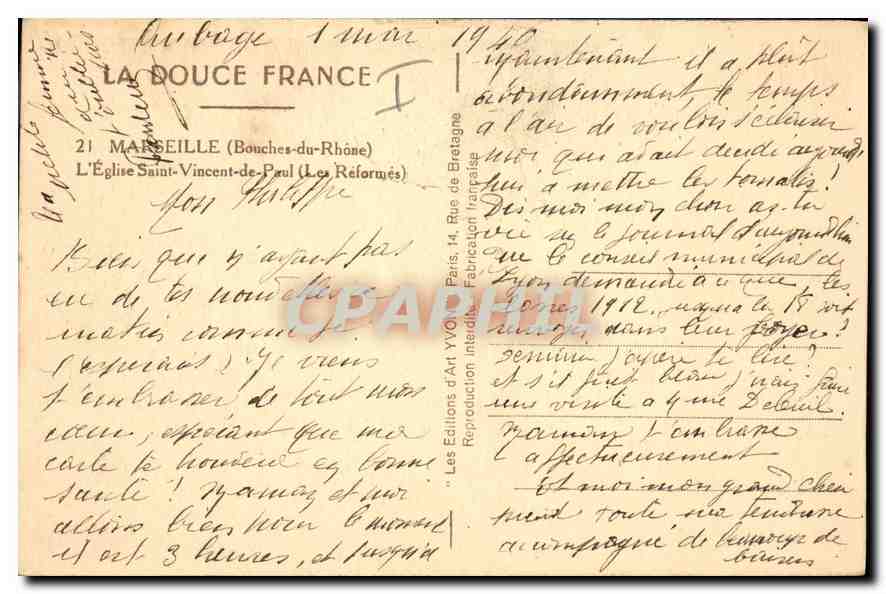 Aubage 1 mai 1940
LA DOUCE FRANCE
I
21 MARSEILLE (Bouches-du-Rhône)
L'Église Saint-Vincent-de-Paul (Les Réformés)
Mon Philippe
Bien que n'ayant pas
eu de tes nouvelles ce
matin comme je
l'espérais, je viens
t'embrasser de tout mon
cœur, espérant que ma
carte te trouvera en bonne
santé! Maman et moi
allons bien pour le moment
il est 3 heures, et jusqu'à
"Les Editions d'Art YVON" Paris, 14, Rue de Bretagne
Reproduction interdite Fabrication française
maintenant il a plut
abondamment, le temps
à l'air de vouloir s'éclaircir
moi qui avait décidé aujourd'
hui à mettre les tomates!
Dis moi mon cher as-tu
vu sur le journal d'aujourd'hui
que le conseil municipal de
Lyon demande à ce que les
classes 1912 soit
renvoyés dans leur foyer?
et s'il fait beau j'irai faire
une visite a Mme
Maman t'embrasse
affectueusement
et moi mon grand cheri
toute ma tendresse
accompagné de de
baisers
CPARHAMA